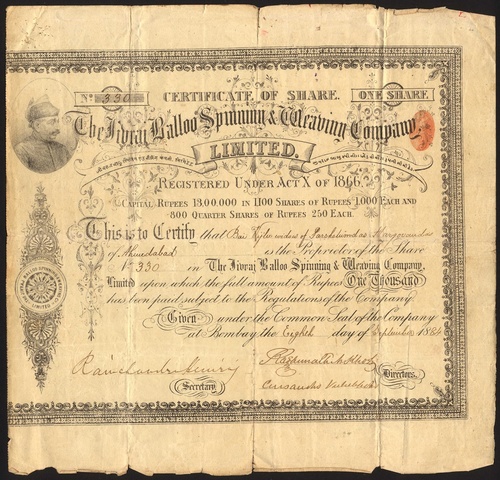 No. 330 CERTIFICATE OF SHARE. ONE SHARE
The Jivraj Balloo Spinning & Weaving Company
LIMITED.
REGISTERED UNDER ACT X OF 1866.
CAPITAL RUPEES 13.00.000 IN 1100 SHARES OF RUPEES 1,000 EACH AND
800 QUARTER SHARES OF RUPEES 250 EACH.
This is to Certify that Bai of Parshotumdas
of Ahmedabad is the Proprietor of the Share
No. 330 in The Jivraj Balloo Spinning & Weaving Company,
Limited upon which the full amount of Rupees One Thousand
has been paid subject to the Regulations of the Company
Given under the Common Seal of the Company
at Bombay the Eighth day of September 1884
Secretary.
Directors.